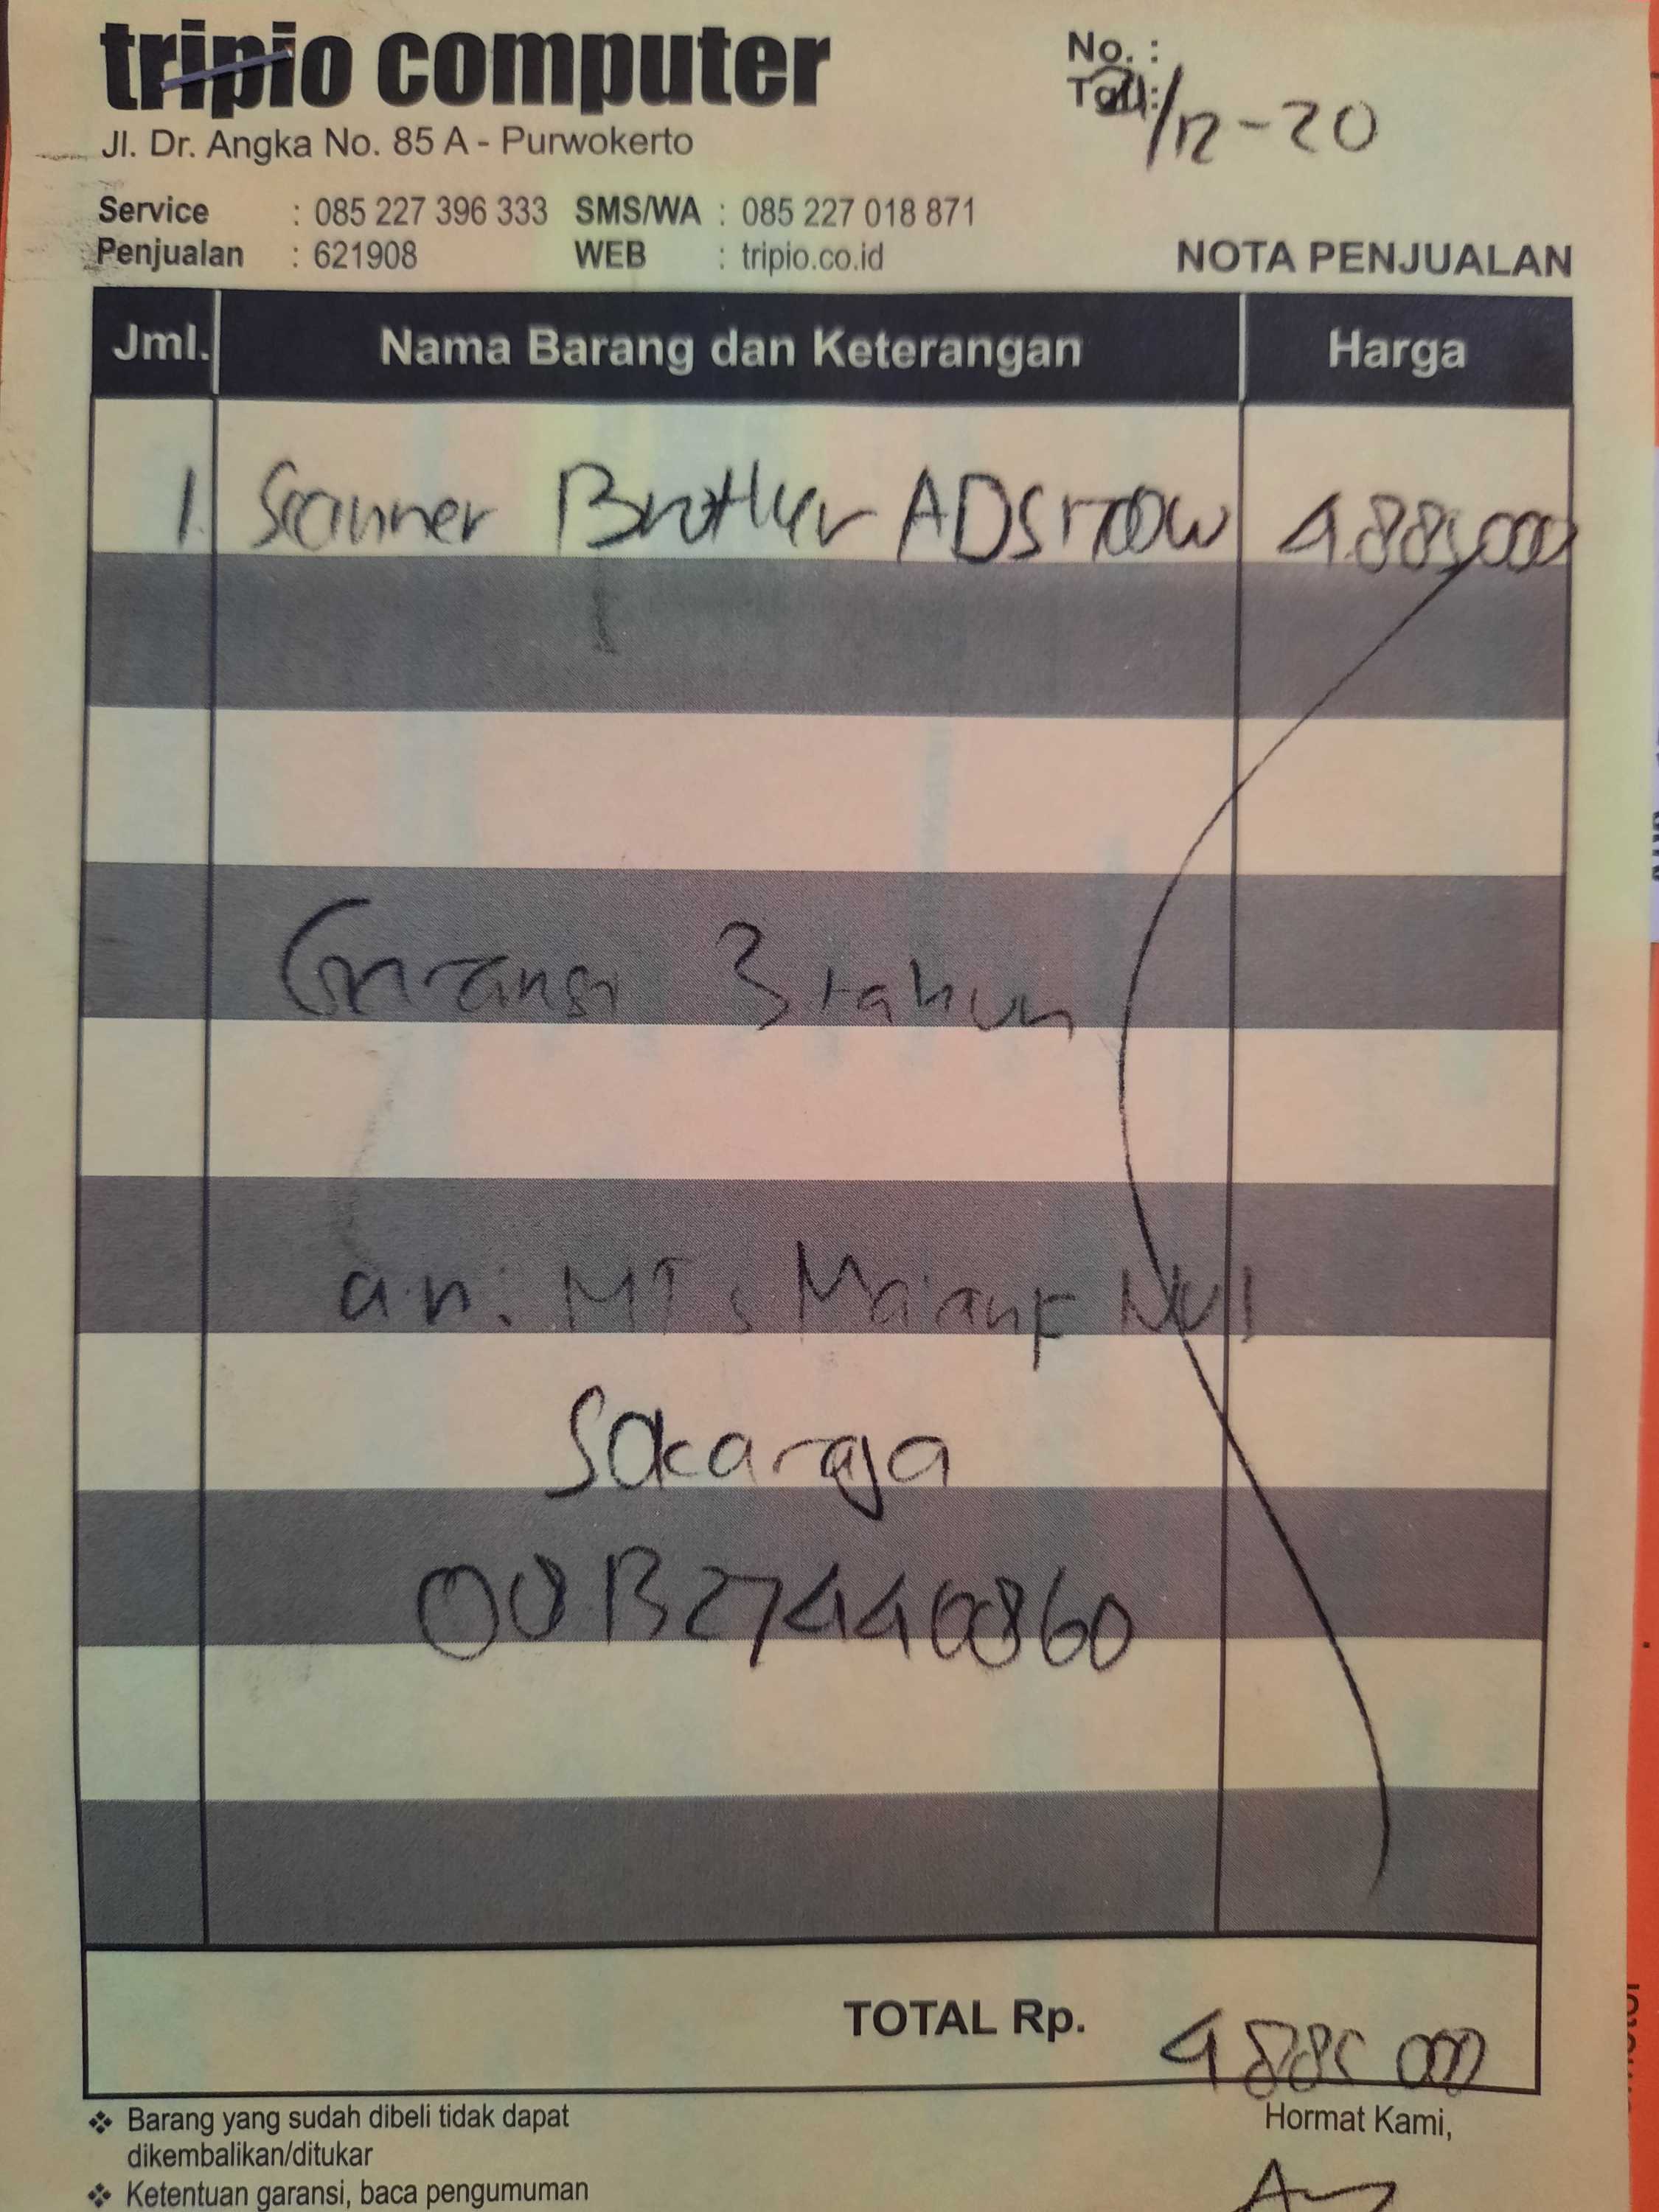 tripio computer
No. :
Jl. Dr. Angka No. 85 A - Purwokerto
Tgl.: /12-20
Service : 085 227 396 333 SMS/WA : 085 227 018 871
Penjualan : 621908 WEB : tripio.co.id
NOTA PENJUALAN
Jml. Nama Barang dan Keterangan Harga
1 Scanner Brother ADS1700W 4.885.000
Garansi 3 tahun
a.n: MTs Ma'arif NU 1
Sokaraja
TOTAL Rp. 4885 000
❖ Barang yang sudah dibeli tidak dapat
dikembalikan/ditukar
❖ Ketentuan garansi, baca pengumuman
Hormat Kami,